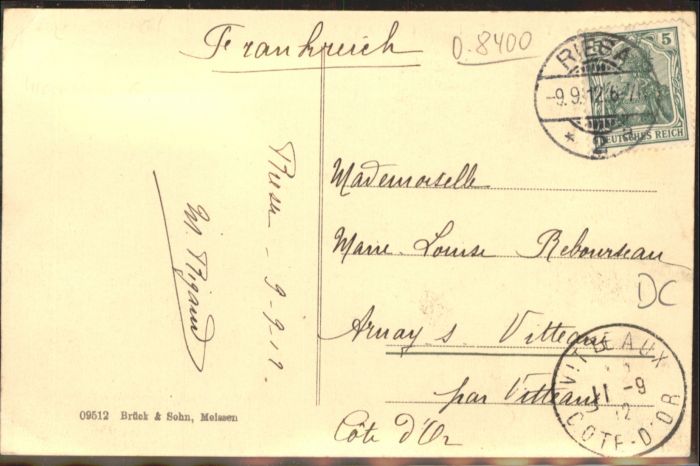 Frankreich
D.8400
5
DEUTSCHES REICH
RIESA
-9.9.12.6-7
* 2 a
Riesa - 9-9-12.
M. Rigaud
Mademoiselle
Marie-Louise Rebourseau
DC
Arnay s. Vitteaux
par Vitteaux
Côte d'Or
VITTEAUX
11 -9
12
COTE-D'OR
09512 Brück & Sohn, Meissen